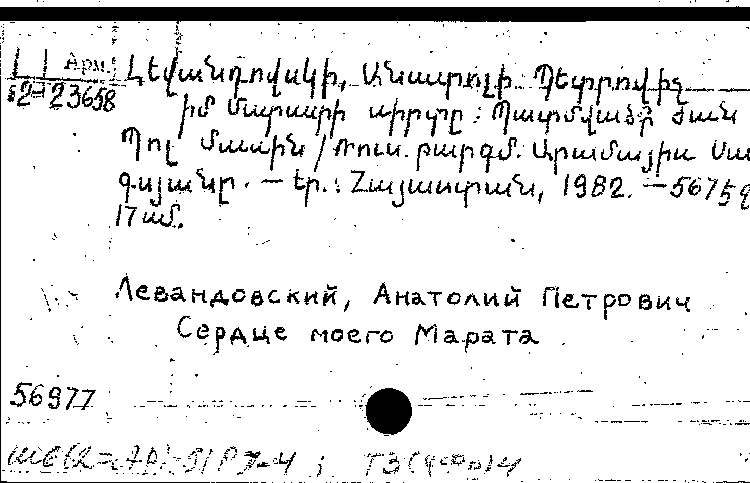 Арм.
82-23658
Լեվանդովսկի, Անատոլի Պետրովիչ
Իմ Մարատի սիրտը: Պատմվածք Ժան
Պոլ Մասին / Ռուս. բարգմ. Արամայիս Սա
գայանը. — Եր.: Հայաստան, 1982. — 567 էջ
17 սմ.
Левандовский, Анатолий Петрович
Сердце моего Марата
56977